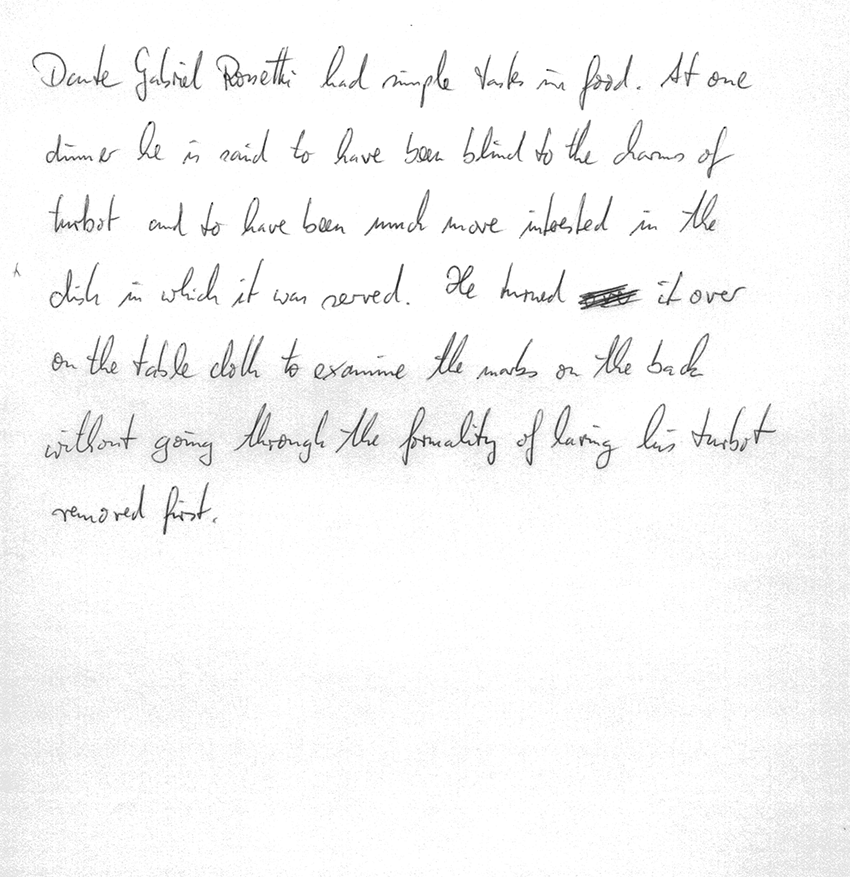 Dante Gabriel Rossetti had simple tastes in food. At one
dinner he is said to have been blind to the charms of
turbot and to have been much more interested in the
dish in which it was served. He turned it over
on the table cloth to examine the marks on the back
without going through the formality of having his turbot
removed first.